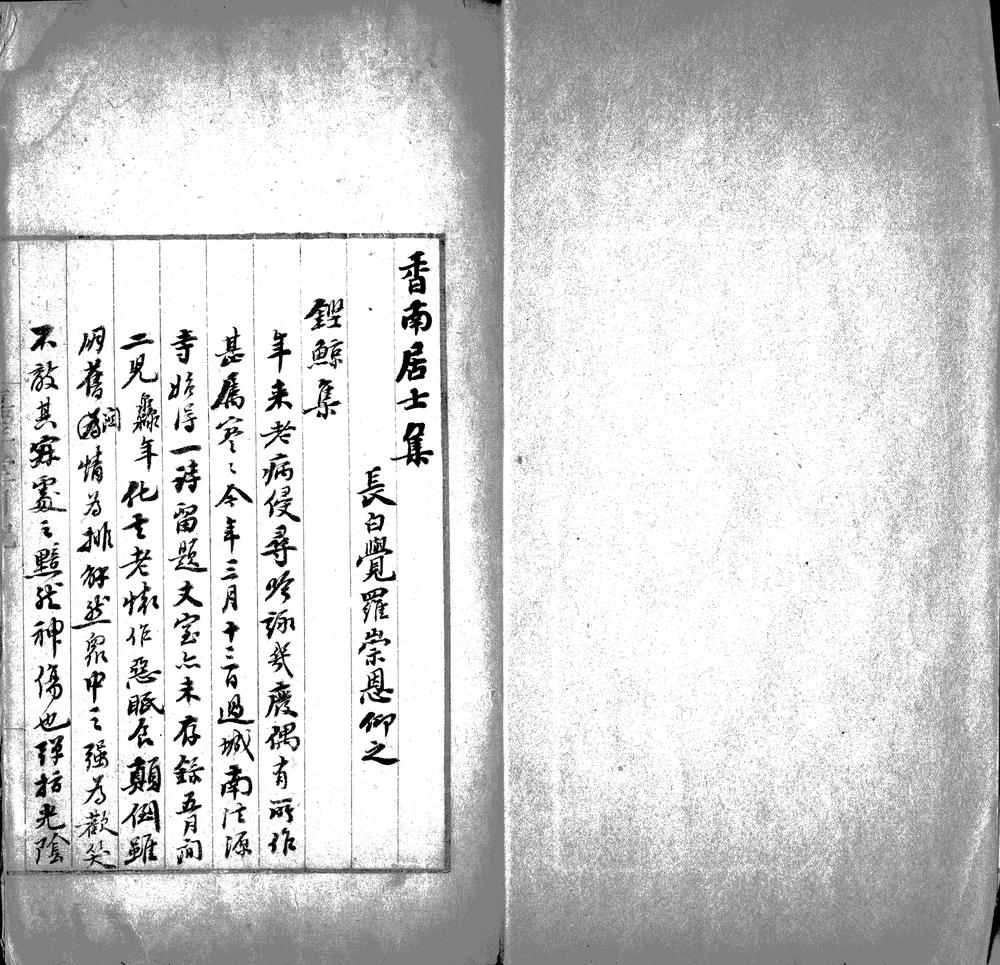 香南居士集
長白覺羅崇恩仰之
鏗鯨集
年来老病侵尋吟詠幾廢偶有所作
甚屬寥〻今年三月十三日過城南法源
寺始得一詩留題丈室亦未存錄五月間
二兒龢年化去老懷作惡眠食顛倒雖
朋舊關情為排解然眾中之強為歡笑
不敵其寂處之黯然神傷也彈指光陰